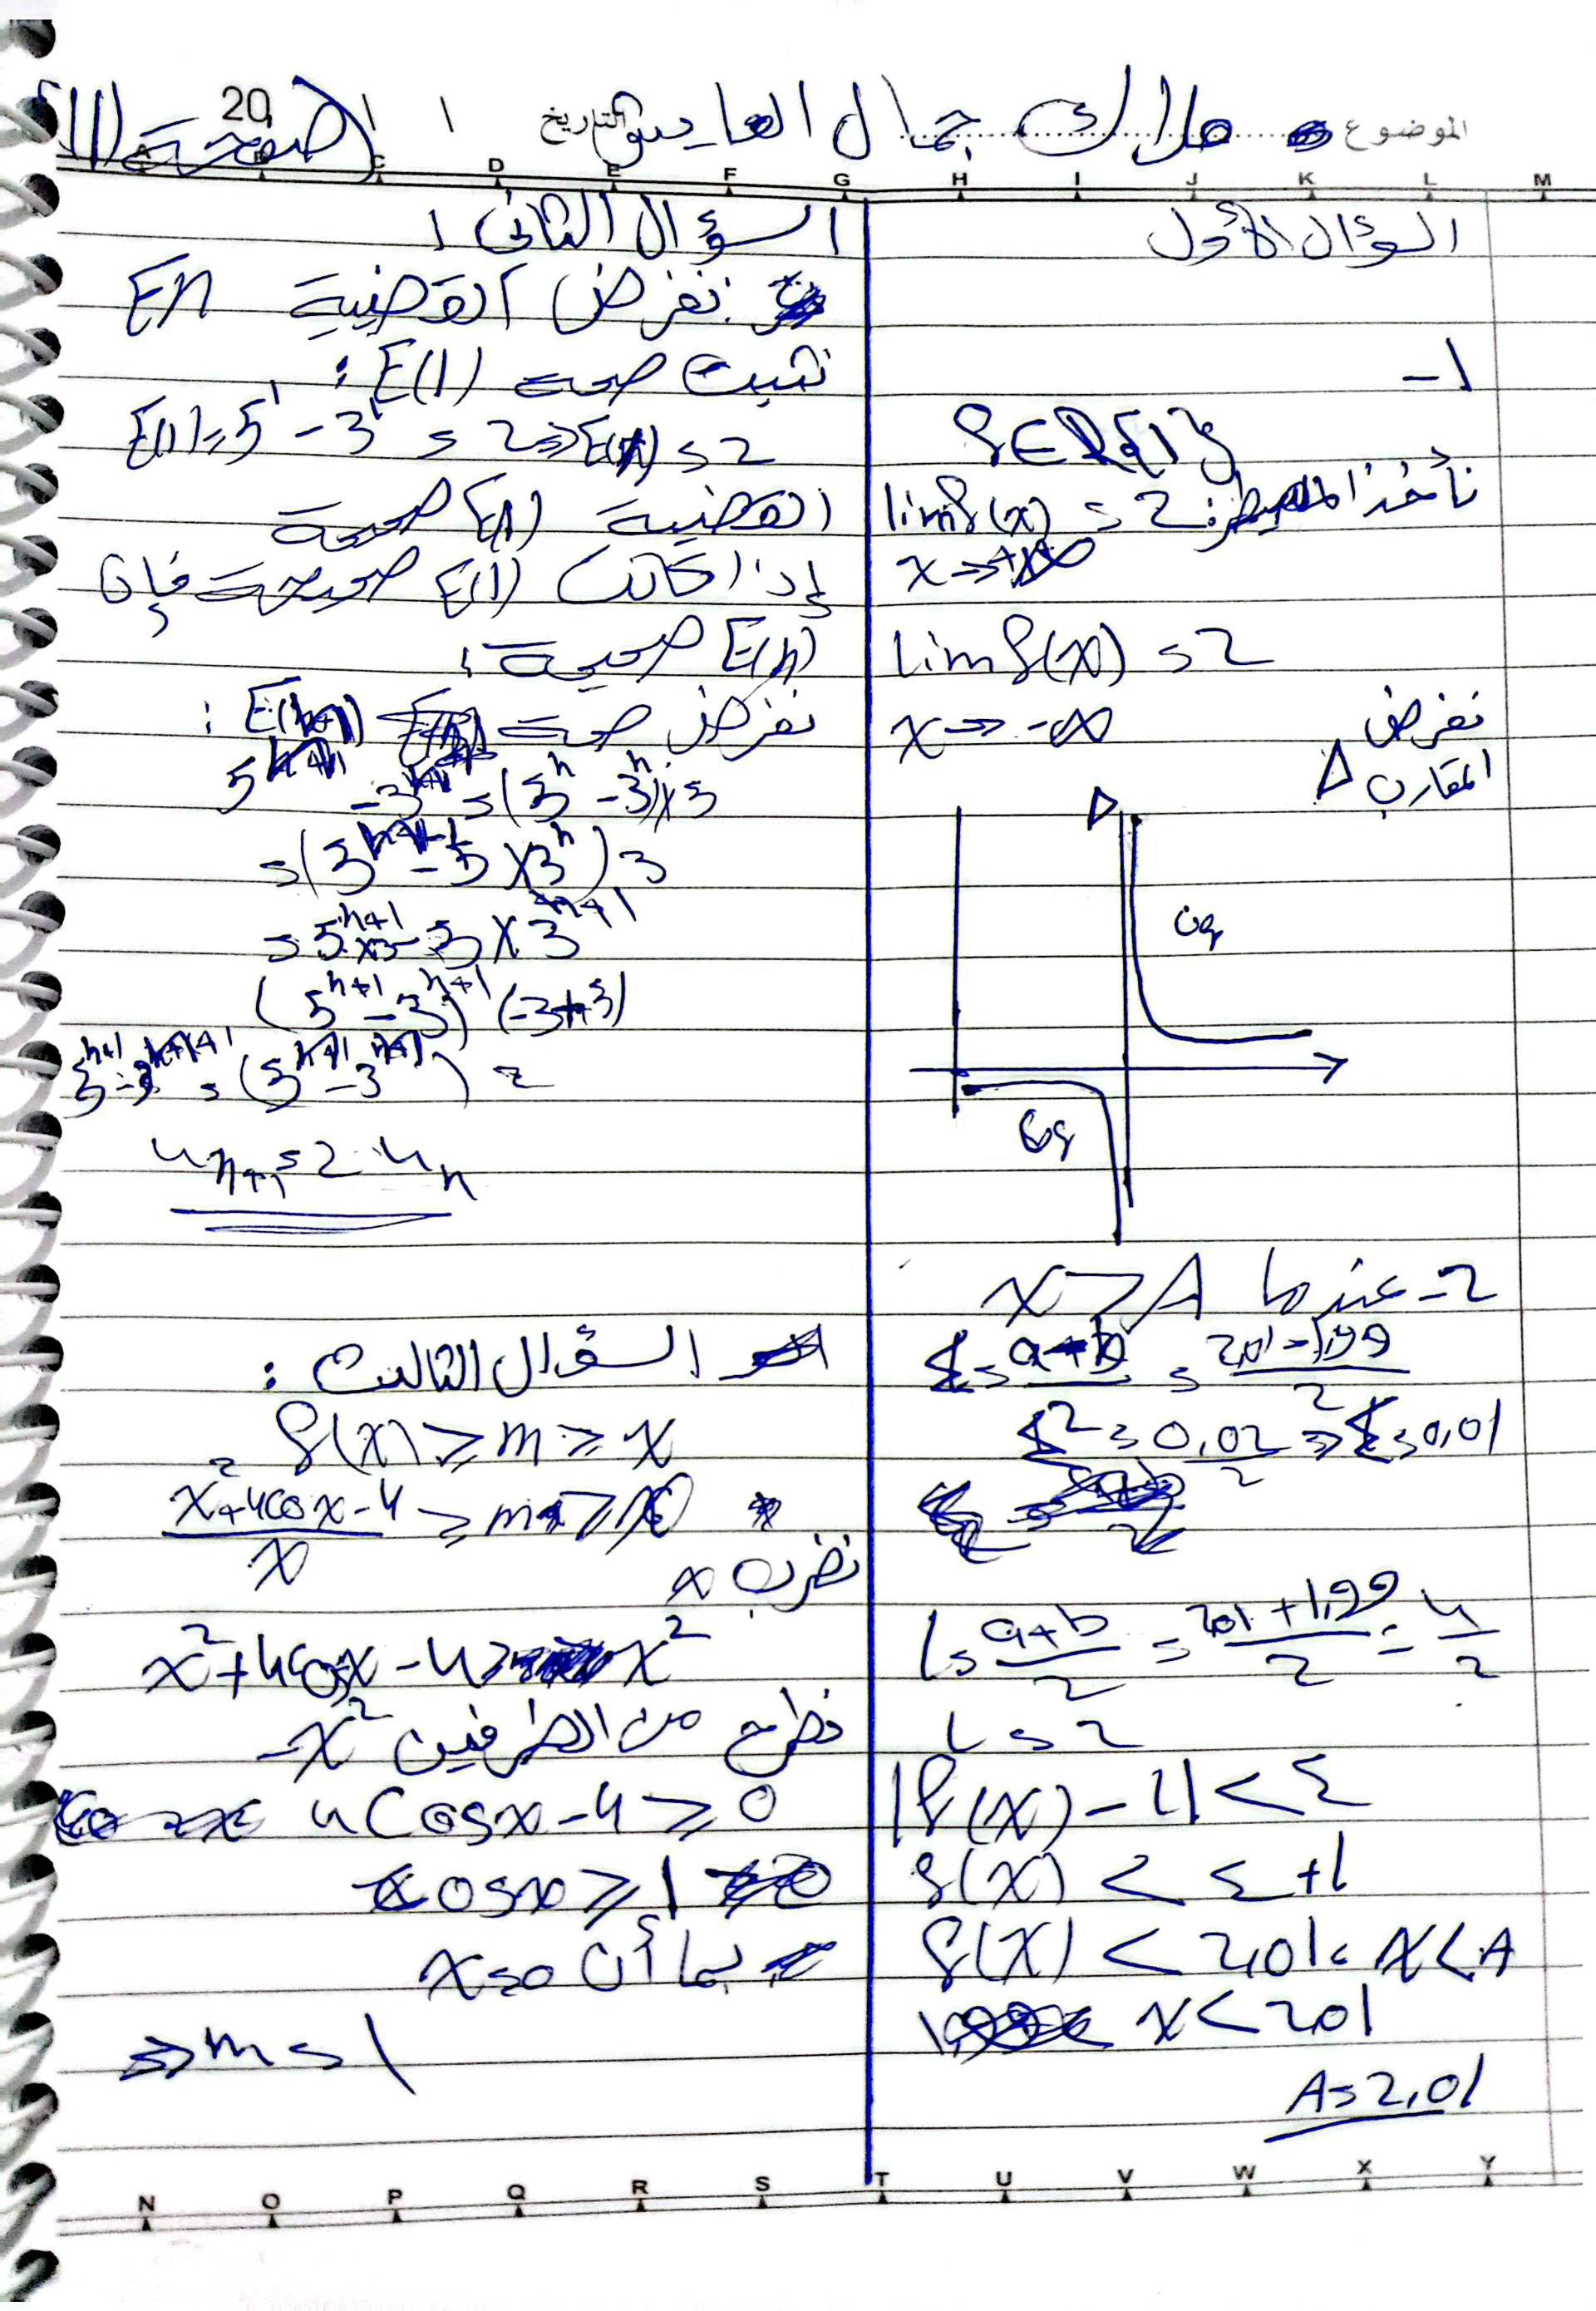 الموضوع ملاك جمال العايق التاريخ / / 20 (صفحة 1)
A B C D E F G H I J K L M
السؤال الأول
1-
f ∈ R\{1}
نأخذ lim f(x) = 2
x → +∞
lim f(x) = 2
x → -∞
نفرض
المقارب Δ
Δ
Cf
Cf
2- عندما x > A
ε = = 2,01 - 1,99
2
ε = 0,02 ⇒ ε = 0,01
2
L = a+b = 2,01 + 1,99 = 4
2 2 2
L = 2
|f(x) - L| < ε
f(x) < ε + L
f(x) < 2,01, x < A
x < 2,01
A = 2,01
السؤال الثاني :
نفرض القضية En
نثبت صحة E(1) :
E(1) = 5¹ - 3¹ = 2 ⇒ E(1) = 2
القضية E(1) صحيحة
إذا كانت E(1) صحيحة فإن
E(n) صحيحة :
نفرض صحة E(n+1) :
5ⁿ⁺¹ - 3ⁿ⁺¹ = (5ⁿ - 3ⁿ) × 5
= (5ⁿ⁺¹ - 5 × 3ⁿ) 3
= 5ⁿ⁺¹ × 3 - 5 × 3ⁿ⁺¹
(5ⁿ⁺¹ - 3ⁿ⁺¹) (-3+5)
5ⁿ⁺¹ - 3ⁿ⁺¹ = (5ⁿ⁺¹ - 3ⁿ⁺¹) 2
uₙ₊₁ = 2 uₙ
السؤال الثالث :
f(x) ≥ m ≥ x
x² + 4cos x - 4 ≥ m ≥ x
x
نضرب x
x² + 4cosx - 4 ≥ x²
نطرح من الطرفين -x²
4cosx - 4 ≥ 0
cosx ≥ 1
بما أن x = 0
⇒ m = 1
N O P Q R S T U V W X Y